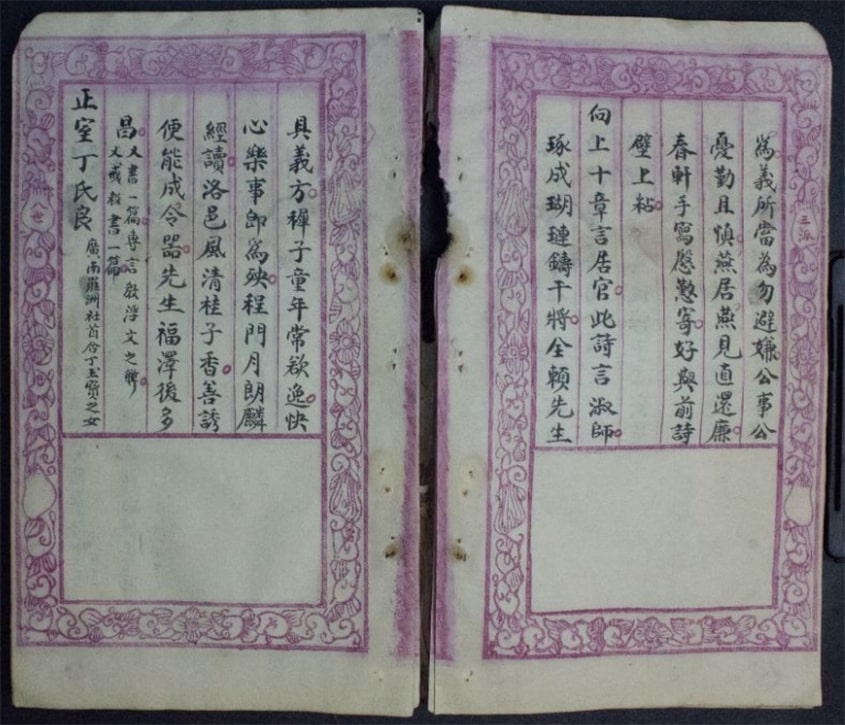 三派
為義所當為勿避嫌公事公
憂勤且慎燕居燕見直還廉
春軒手寫慇懃寄好與前詩
壁上粘
向上十章言居官此詩言淑師
琢成瑚璉鑄干將全賴先生
具義方稺子童年常欲逸快
心樂事卽為殃程門月朗麟
經讀洛邑風清桂子香善誘
便能成令器先生福澤後多
昌又書一篇專言殷浮文之弊
又戒殺書一篇
正室丁氏良廣南羅洲社首合丁玉贒之女
八世